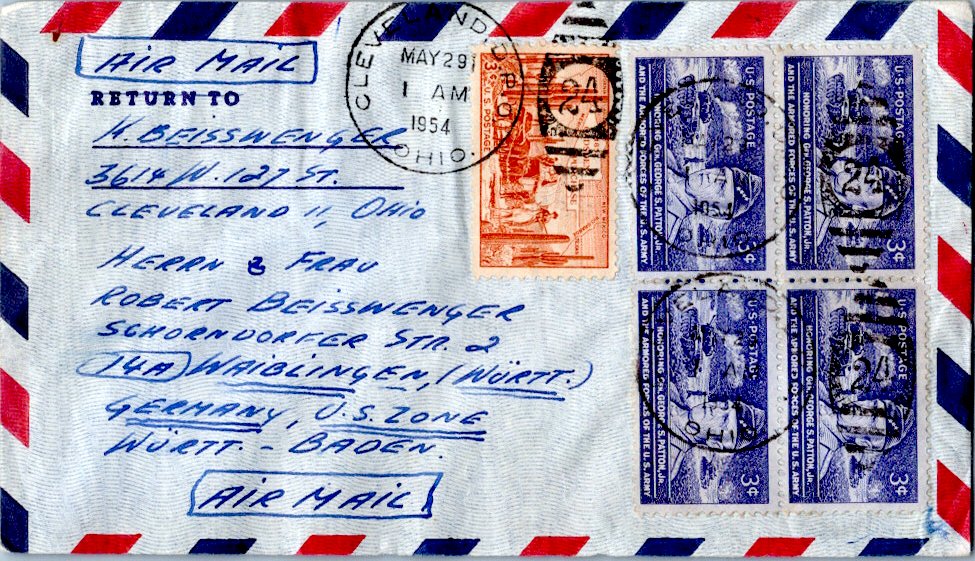 AIR MAIL
RETURN TO
K. BEISSWENGER
3614 W. 127 ST.
CLEVELAND 11, OHIO
HERRN & FRAU
ROBERT BEISSWENGER
SCHORNDORFER STR. 2
14A WAIBLINGEN, (WÜRTT.)
GERMANY, U.S. ZONE
WÜRTT. - BADEN.
AIR MAIL
CLEVELAND
MAY 29
1 AM
1954
OHIO
24
3¢ U.S. POSTAGE
U.S. POSTAGE
HONORING GEN. GEORGE S. PATTON, JR.
AND THE ARMORED FORCES OF THE U.S. ARMY
U.S. POSTAGE
HONORING GEN. GEORGE S. PATTON, JR.
AND THE ARMORED FORCES OF THE U.S. ARMY
3¢
24
U.S. POSTAGE
HONORING GEN. GEORGE S. PATTON, JR.
AND THE ARMORED FORCES OF THE U.S. ARMY
OHIO
U.S. POSTAGE
HONORING GEN. GEORGE S. PATTON, JR.
AND THE ARMORED FORCES OF THE U.S. ARMY
3¢
24